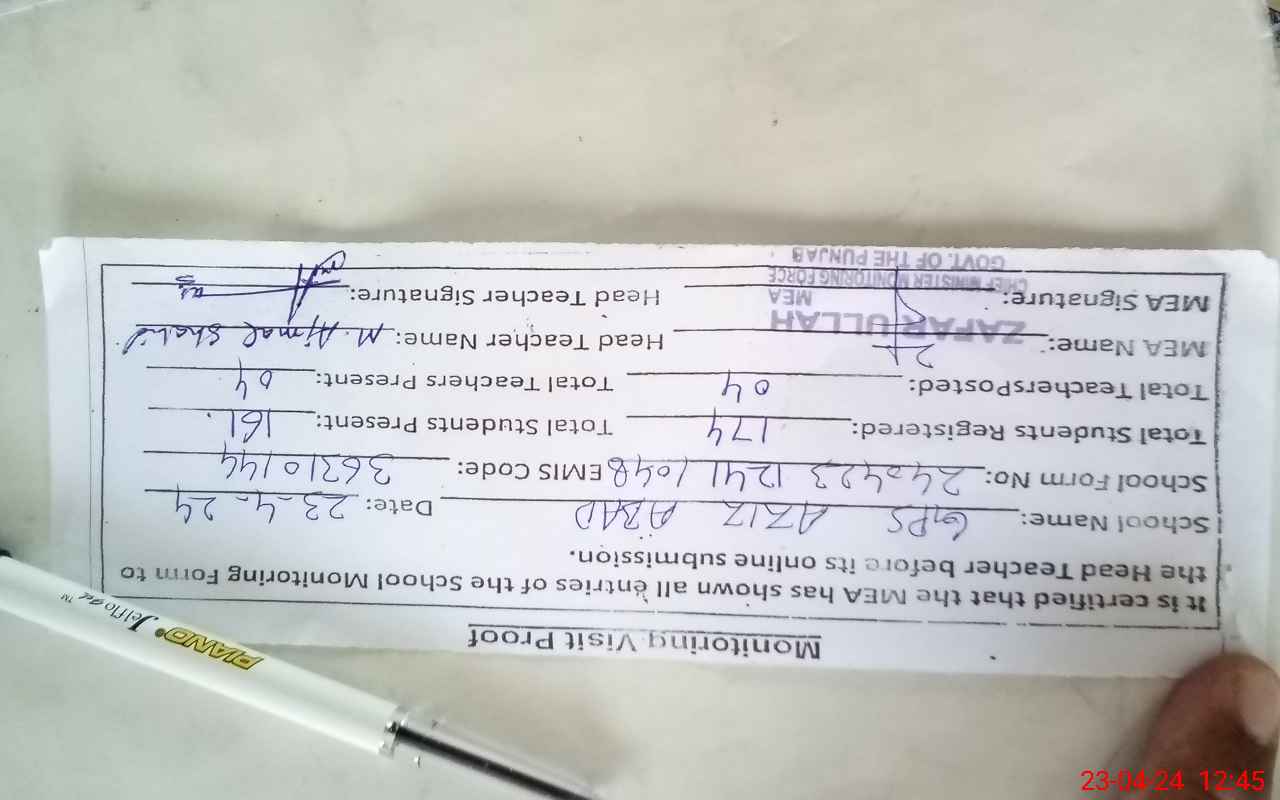 Monitoring Visit Proof
It is certified that the MEA has shown all entries of the School Monitoring Form to
the Head Teacher before its online submission.
School Name: GPS AZIZ ABAD Date: 23-4-24
School Form No: 240423 1241 1048 EMIS Code: 36310144
Total Students Registered: 174 Total Students Present: 161.
Total TeachersPosted: 04 Total Teachers Present: 04
MEA Name: ZAFAR ULLAH Head Teacher Name: M. Ajmal Shahid
MEA
MEA Signature: Head Teacher Signature:
CHIEF MINISTER MONITORING FORCE
GOVT. OF THE PUNJAB
PIANO Jelflo gel ™
23-04-24 12:45